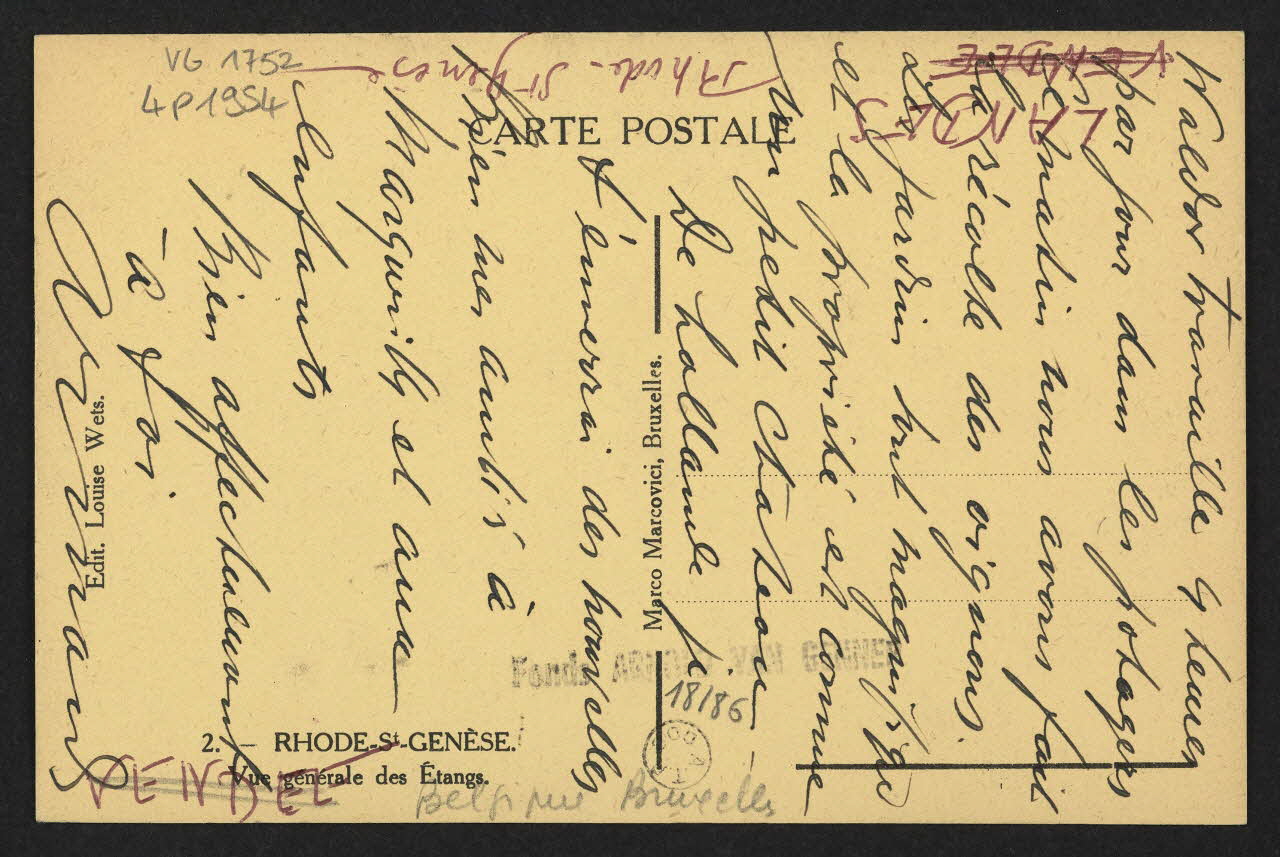 VG 1752
4P1954
Rhode-St-Genèse
VENDEE
LANDES
CARTE POSTALE
Waldor travaille 9 heures
par jour dans les potagers
ce matin nous avons fait
la récolte des oignons
Les jardins sont magnifiques
et la propriété est comme
un petit Chateau
De hollande je
t'enverrai des nouvelles
Bien mes amitiés à
et aux
Enfants
Bien affectueusement
à toi
Marco Marcovici, Bruxelles.
Edit. Louise Wets.
Fonds VAN GENNEP
18/86
2. — RHODE-St-GENÈSE.
Vue générale des Étangs.
VENDEE
Belgique Bruxelles